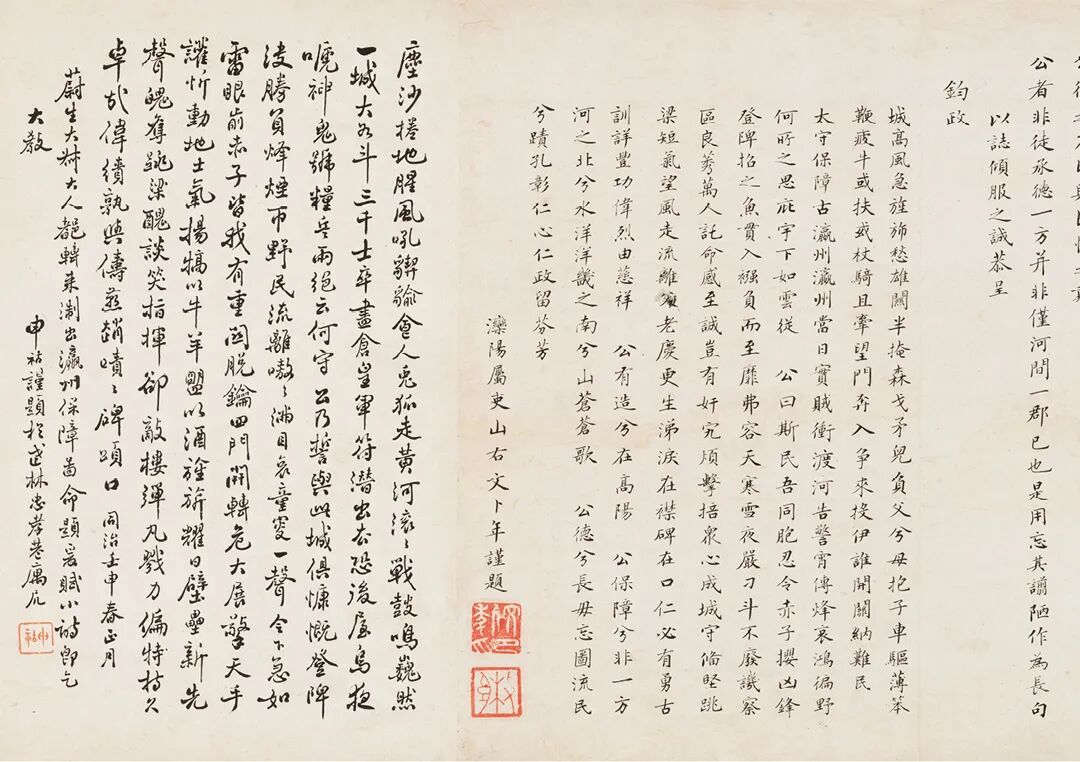 公者非徒承德一方并非僅河間一郡已也是用忘其譾陋作為長句
以誌傾服之誠恭呈
鈞政
城高風急旌旆愁雄關半掩森戈矛兒負父兮母抱子車驅薄笨
鞭疲牛或扶或杖騎且牽望門奔入爭來投伊誰開關納難民
太守保障古瀛州瀛州當日實賊衝渡河告警宵傳烽哀鴻徧野
何所之思庇宇下如雲從 公曰斯民吾同胞忍令赤子攖凶鋒
登陴招之魚貫入襁負而至靡弗容天寒雪夜嚴刁斗不廢譏察
區良莠萬人託命感至誠豈有奸宄煩擊掊眾心成城守備堅跳
梁短氣望風走流離黃老慶更生涕淚在襟碑在口仁必有勇古
訓詳豐功偉烈由慈祥 公有造兮在高陽 公保障兮非一方
河之北兮水洋洋畿之南兮山蒼蒼歌 公德兮長毋忘圖流民
兮蹟孔彰仁心仁政留芬芳
灤陽屬吏山右文卜年謹題
塵沙捲地腥風吼猰貐食人兔狐走黃河滾〻戰鼓鳴巍然
一城大如斗三千士卒盡倉皇軍符潛出去恐後屋烏夜
嗁神鬼號糧兵兩絕云何守 公乃誓與此城俱慷慨登陴
決勝負烽煙帀野民流離嗷〻滿目哀童叟一聲令下急如
雷眼前赤子皆我有重関脫鑰四門開轉危大展擎天手
讙忻動地士氣揚犒以牛羊盟以酒旌旂耀日壁壘新先
聲魄奪跳梁醜談笑指揮卻敵樓彈丸戮力徧特持久
卓哉偉績孰與儔燕趙嘖〻碑頌口 同治壬申春正月
蔚生大叔大人都轉來淛出瀛州保障啚命題爰賦小詩即乞
大教
申祜謹題於武林忠孝巷寓凥